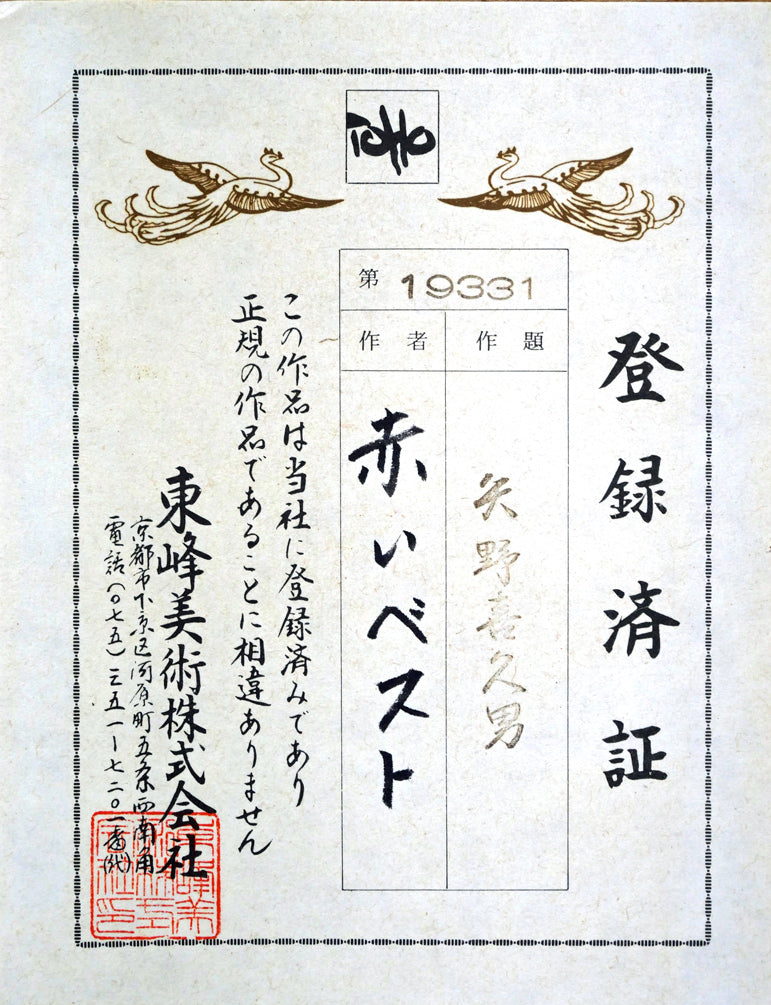 TOHO
登録済証
第 19331
作題
矢野喜久男
作者
赤いベスト
この作品は当社に登録済みであり
正規の作品であることに相違ありません
東峰美術株式会社
京都市下京区河原町五条西南角
電話(〇七五)三五一ー七二〇一番(代)